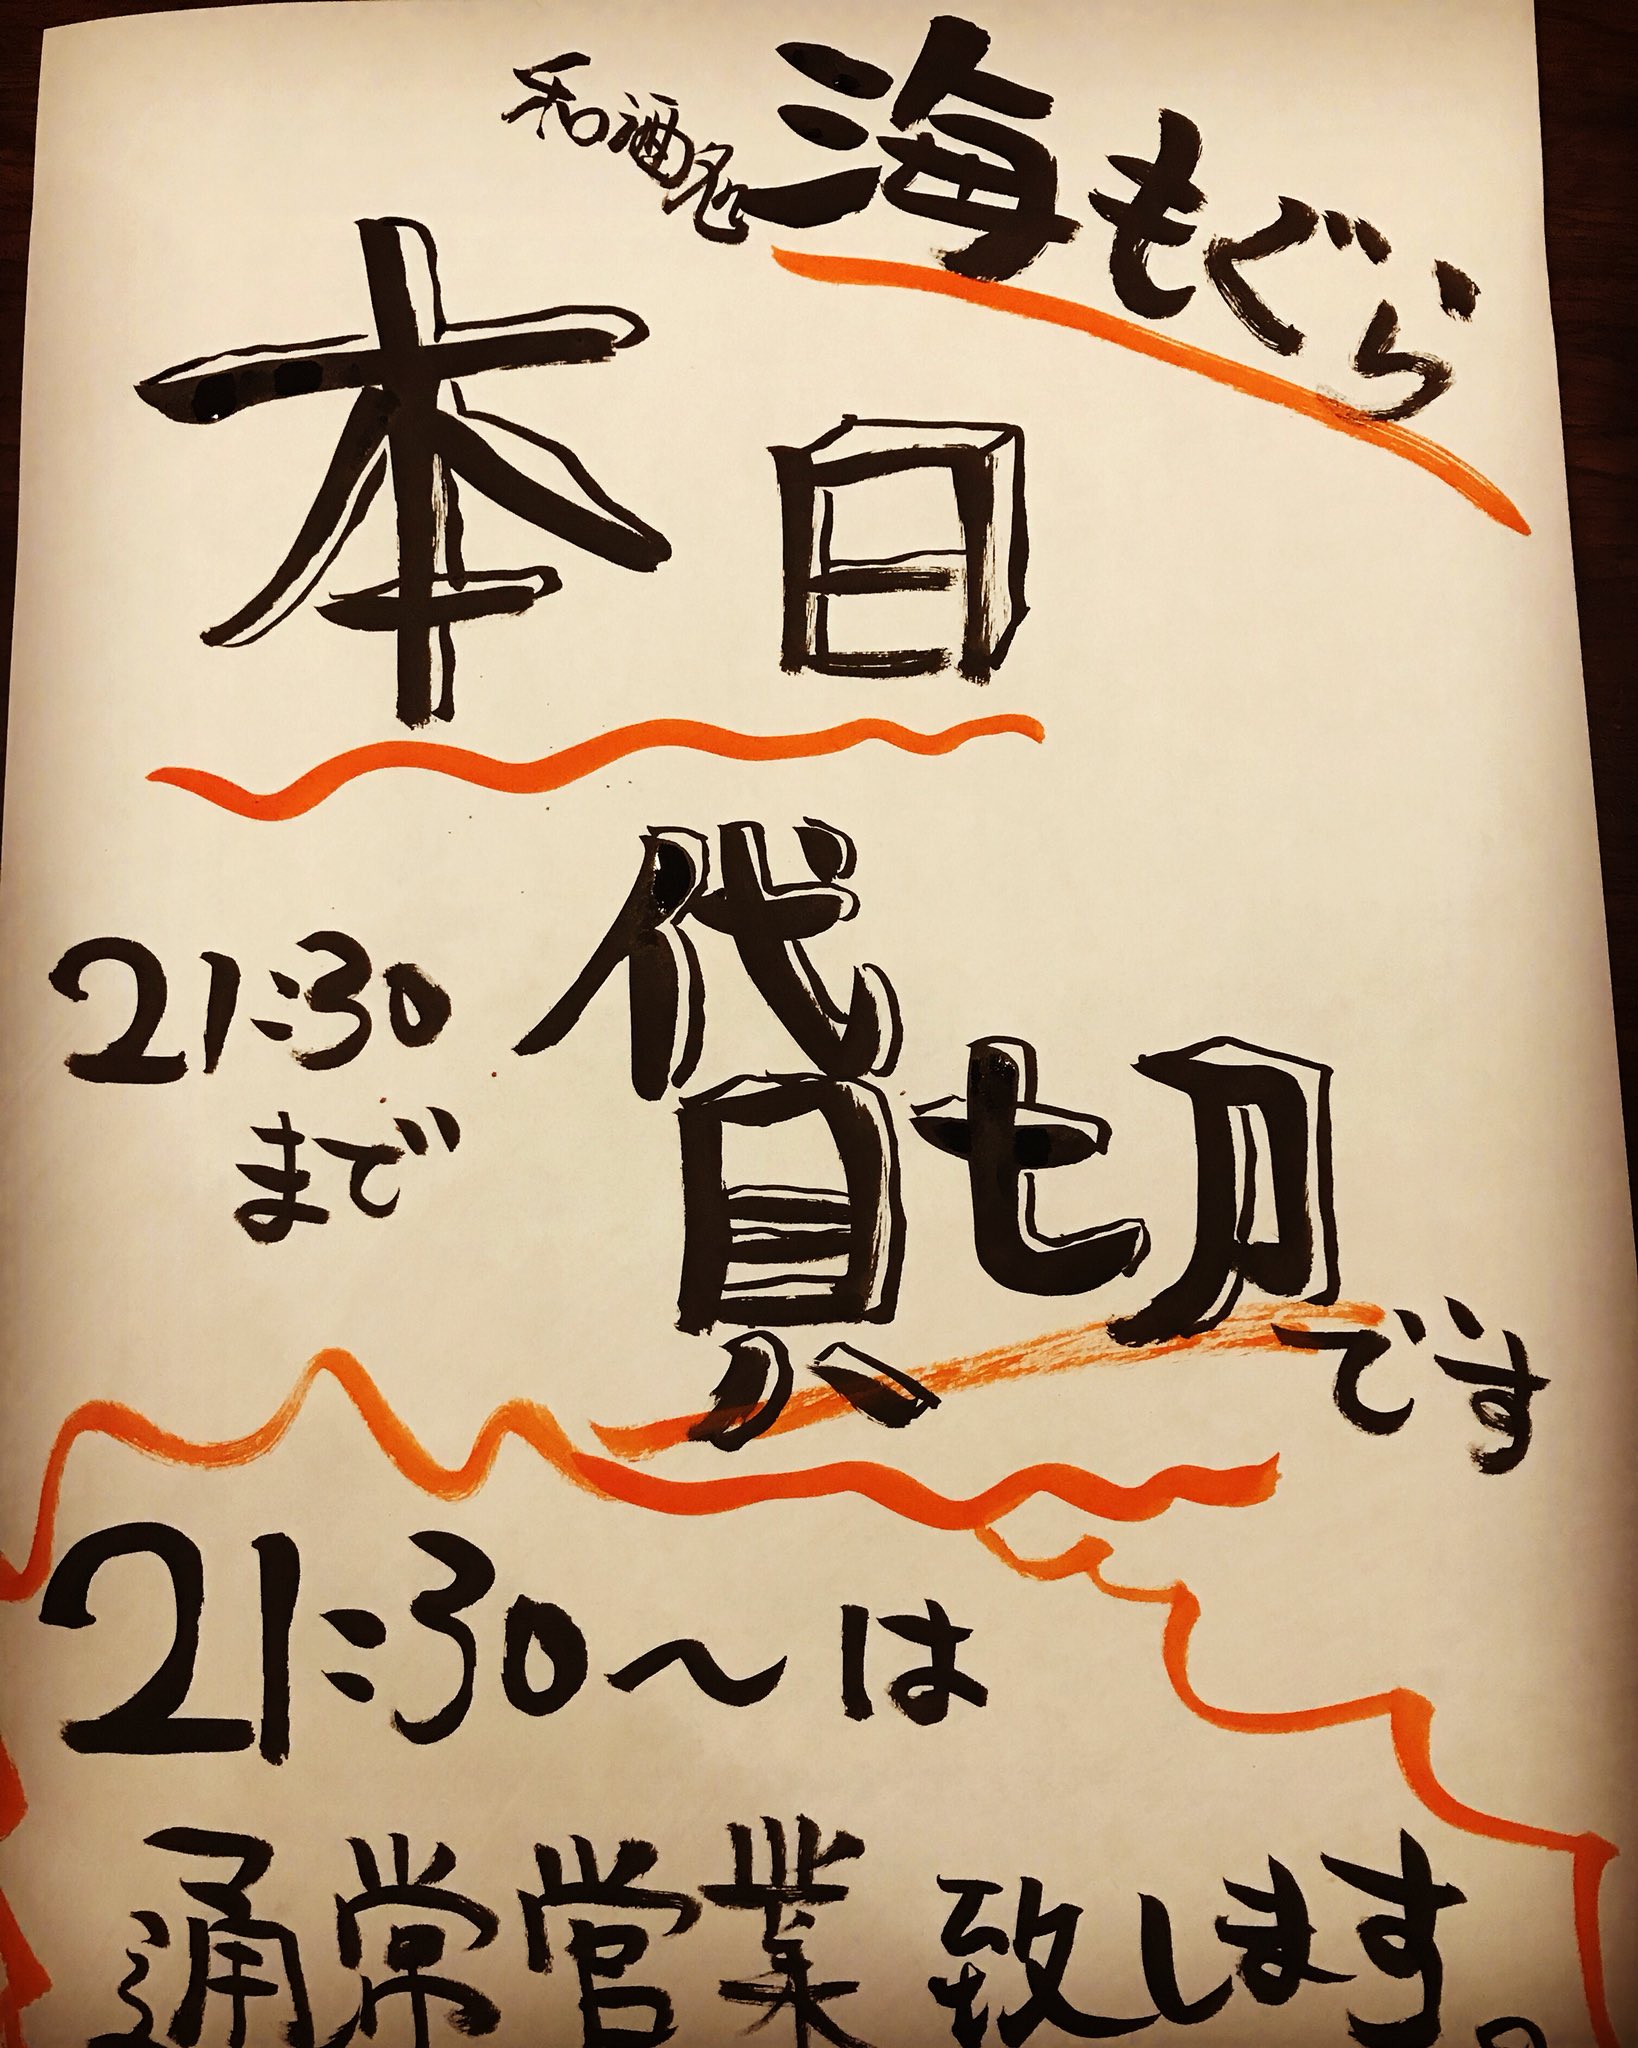 和酒処 海もぐら
本日
21:30まで
貸切です
21:30～は
通常営業致します。